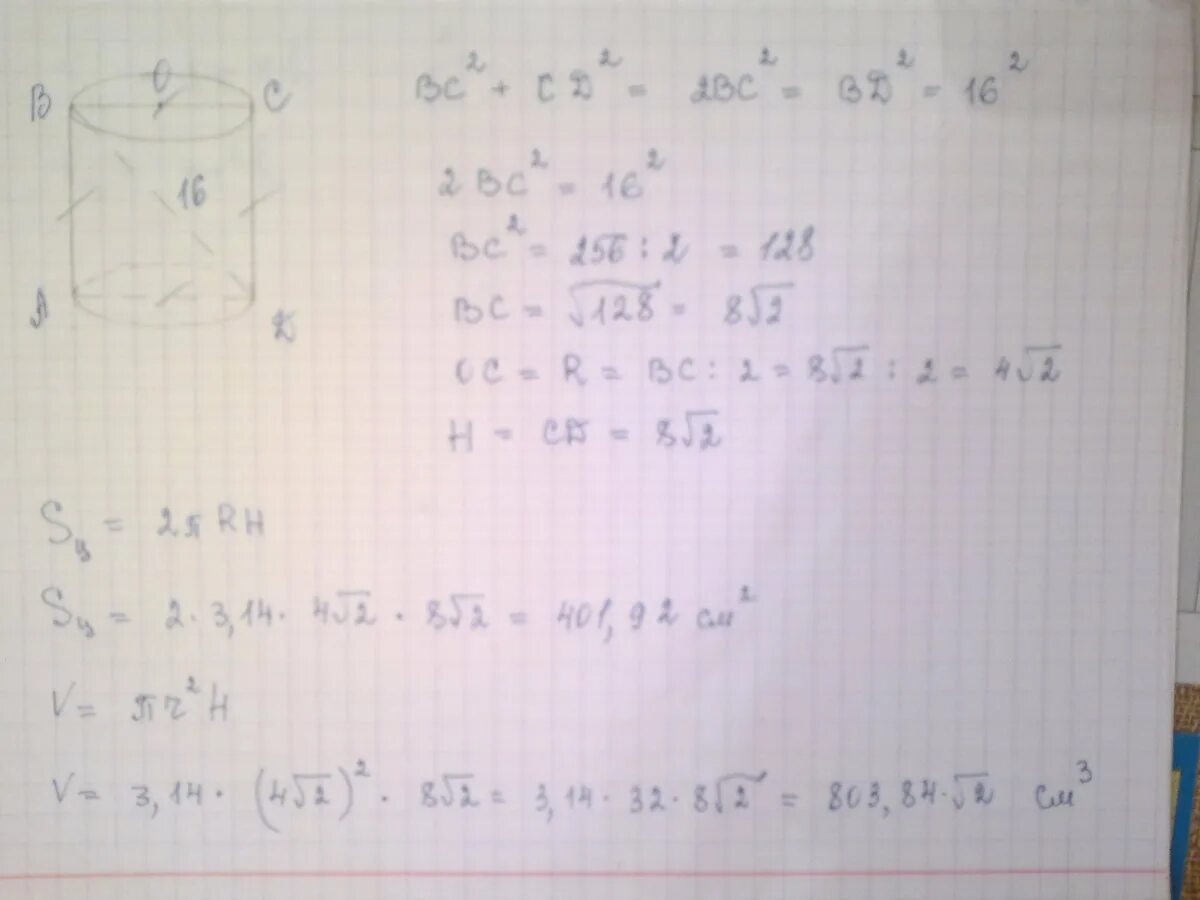 B O C
16
A D
BC² + CD² = 2BC² = BD² = 16²
2 BC² = 16²
BC² = 256 : 2 = 128
BC = √128 = 8√2
OC = R = BC : 2 = 8√2 : 2 = 4√2
H = CD = 8√2
Sц = 2π RH
Sц = 2 · 3,14 · 4√2 · 8√2 = 401,92 см²
V = πr² H
V = 3,14 · (4√2)² · 8√2 = 3,14 · 32 · 8√2 = 803,84·√2 см³